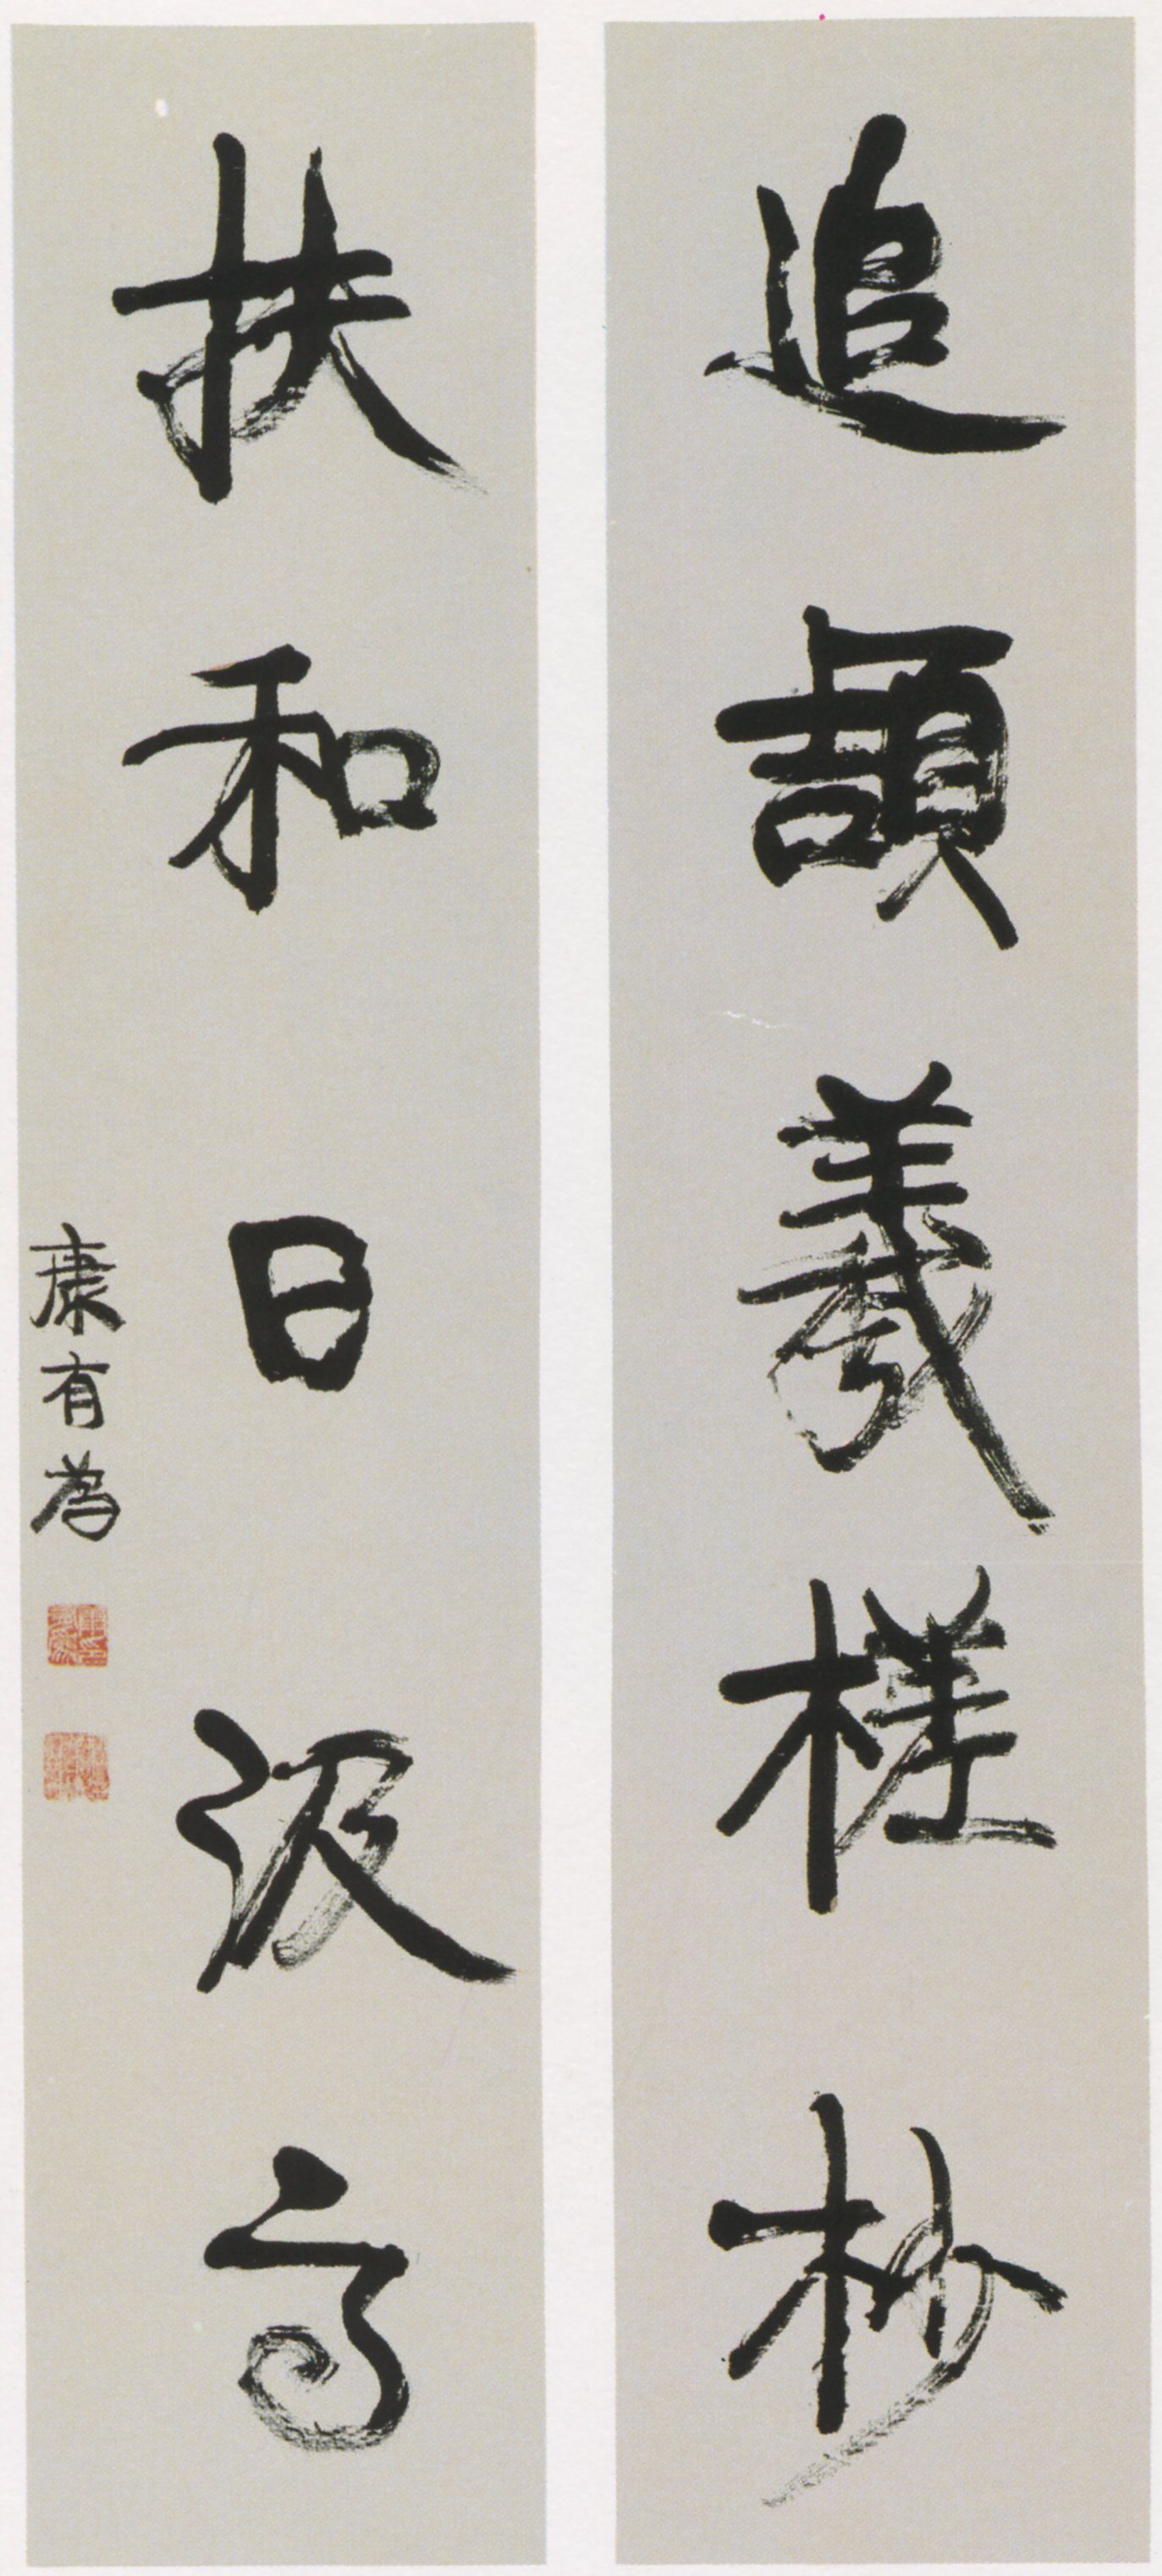 追頡羲槎杪
扶和日汲高
康有為